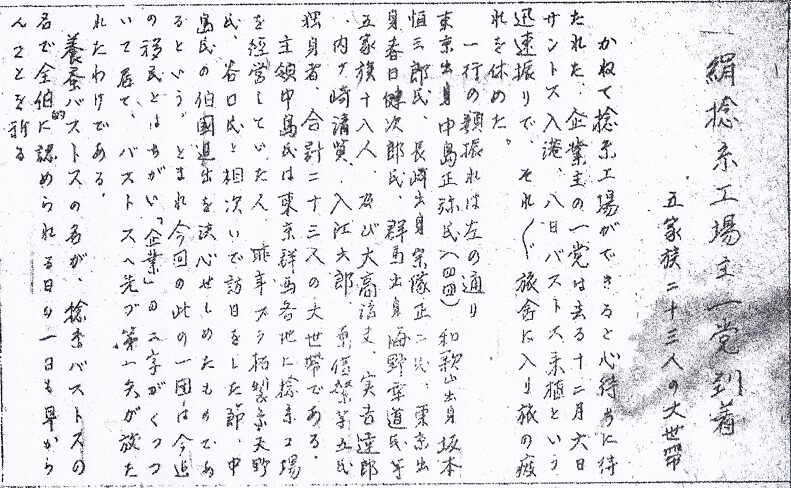 絹撚糸工場主一党到着
五家族二十三人の大世帯
かねて撚糸工場ができると心待ちに待
たれた、企業主の一党は去る十二月六日
サントス入港、八日バストス来植という
迅速振りで、それ〲旅舎に入り旅の疲
れを休めた。
一行の顔振れは左の通り
東京出身中島正弥氏(四四)和歌山出身坂本
恒三郎氏、長崎出身宗像正二氏、東京出
身春日健次郎氏、群馬出身海野幸道氏等
五家族十八人、及び大高清文、実吉達郎
、内ケ崎清質、入江六郎、等五氏
独身者、合計二十三人の大世帯である。
主領中島氏は東京群馬各地に撚糸工場
を経営していた人、昨年ブラ拓製糸天野
氏、谷口氏と相次いで訪日をした節、中
島氏の伯國進出を決心せしめたものであ
るという。とまれ今回の此の一団は今迄
の移民とはちがい「企業」の二字がくっつ
いて居て、バストスへ先づ第一矢が放た
れたわけである。
養蚕バストスの名が、撚糸バストスの
名で全伯的に認められる日の一日も早から
んことを祈る